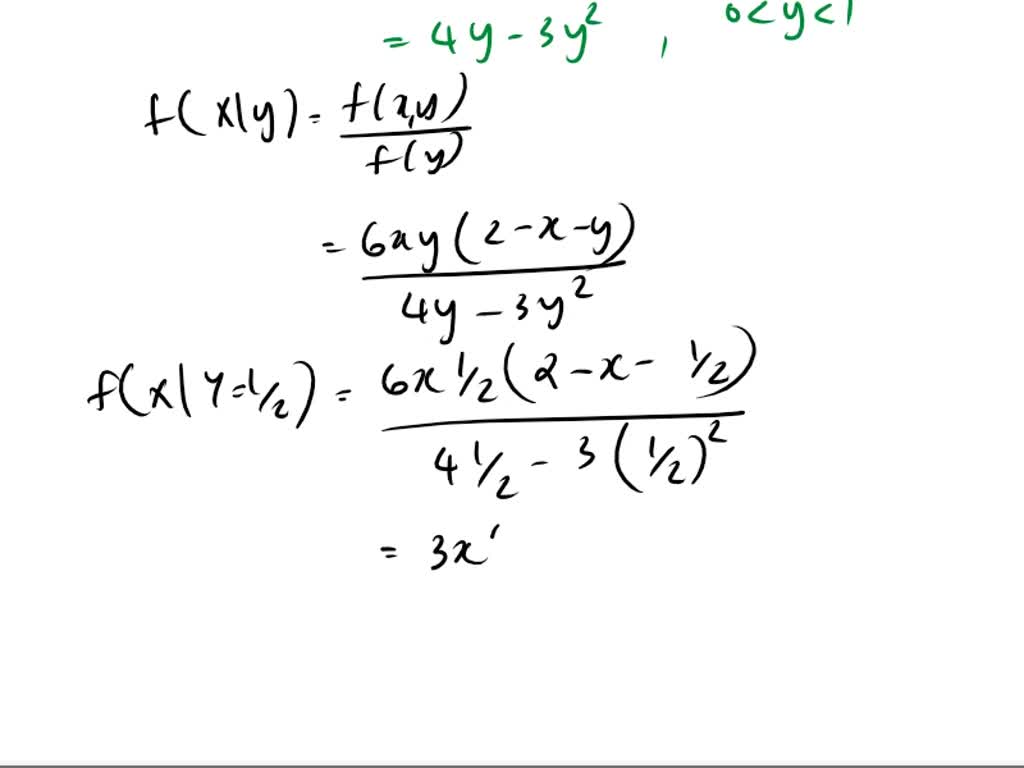 = 4y - 3y² , 0<y<1
f(x|y) = f(x,y) / f(y)
= 6xy(2-x-y) / 4y - 3y²
f(x|Y=1/2) = 6x 1/2 (2-x- 1/2) / 4 1/2 - 3(1/2)²
= 3x'